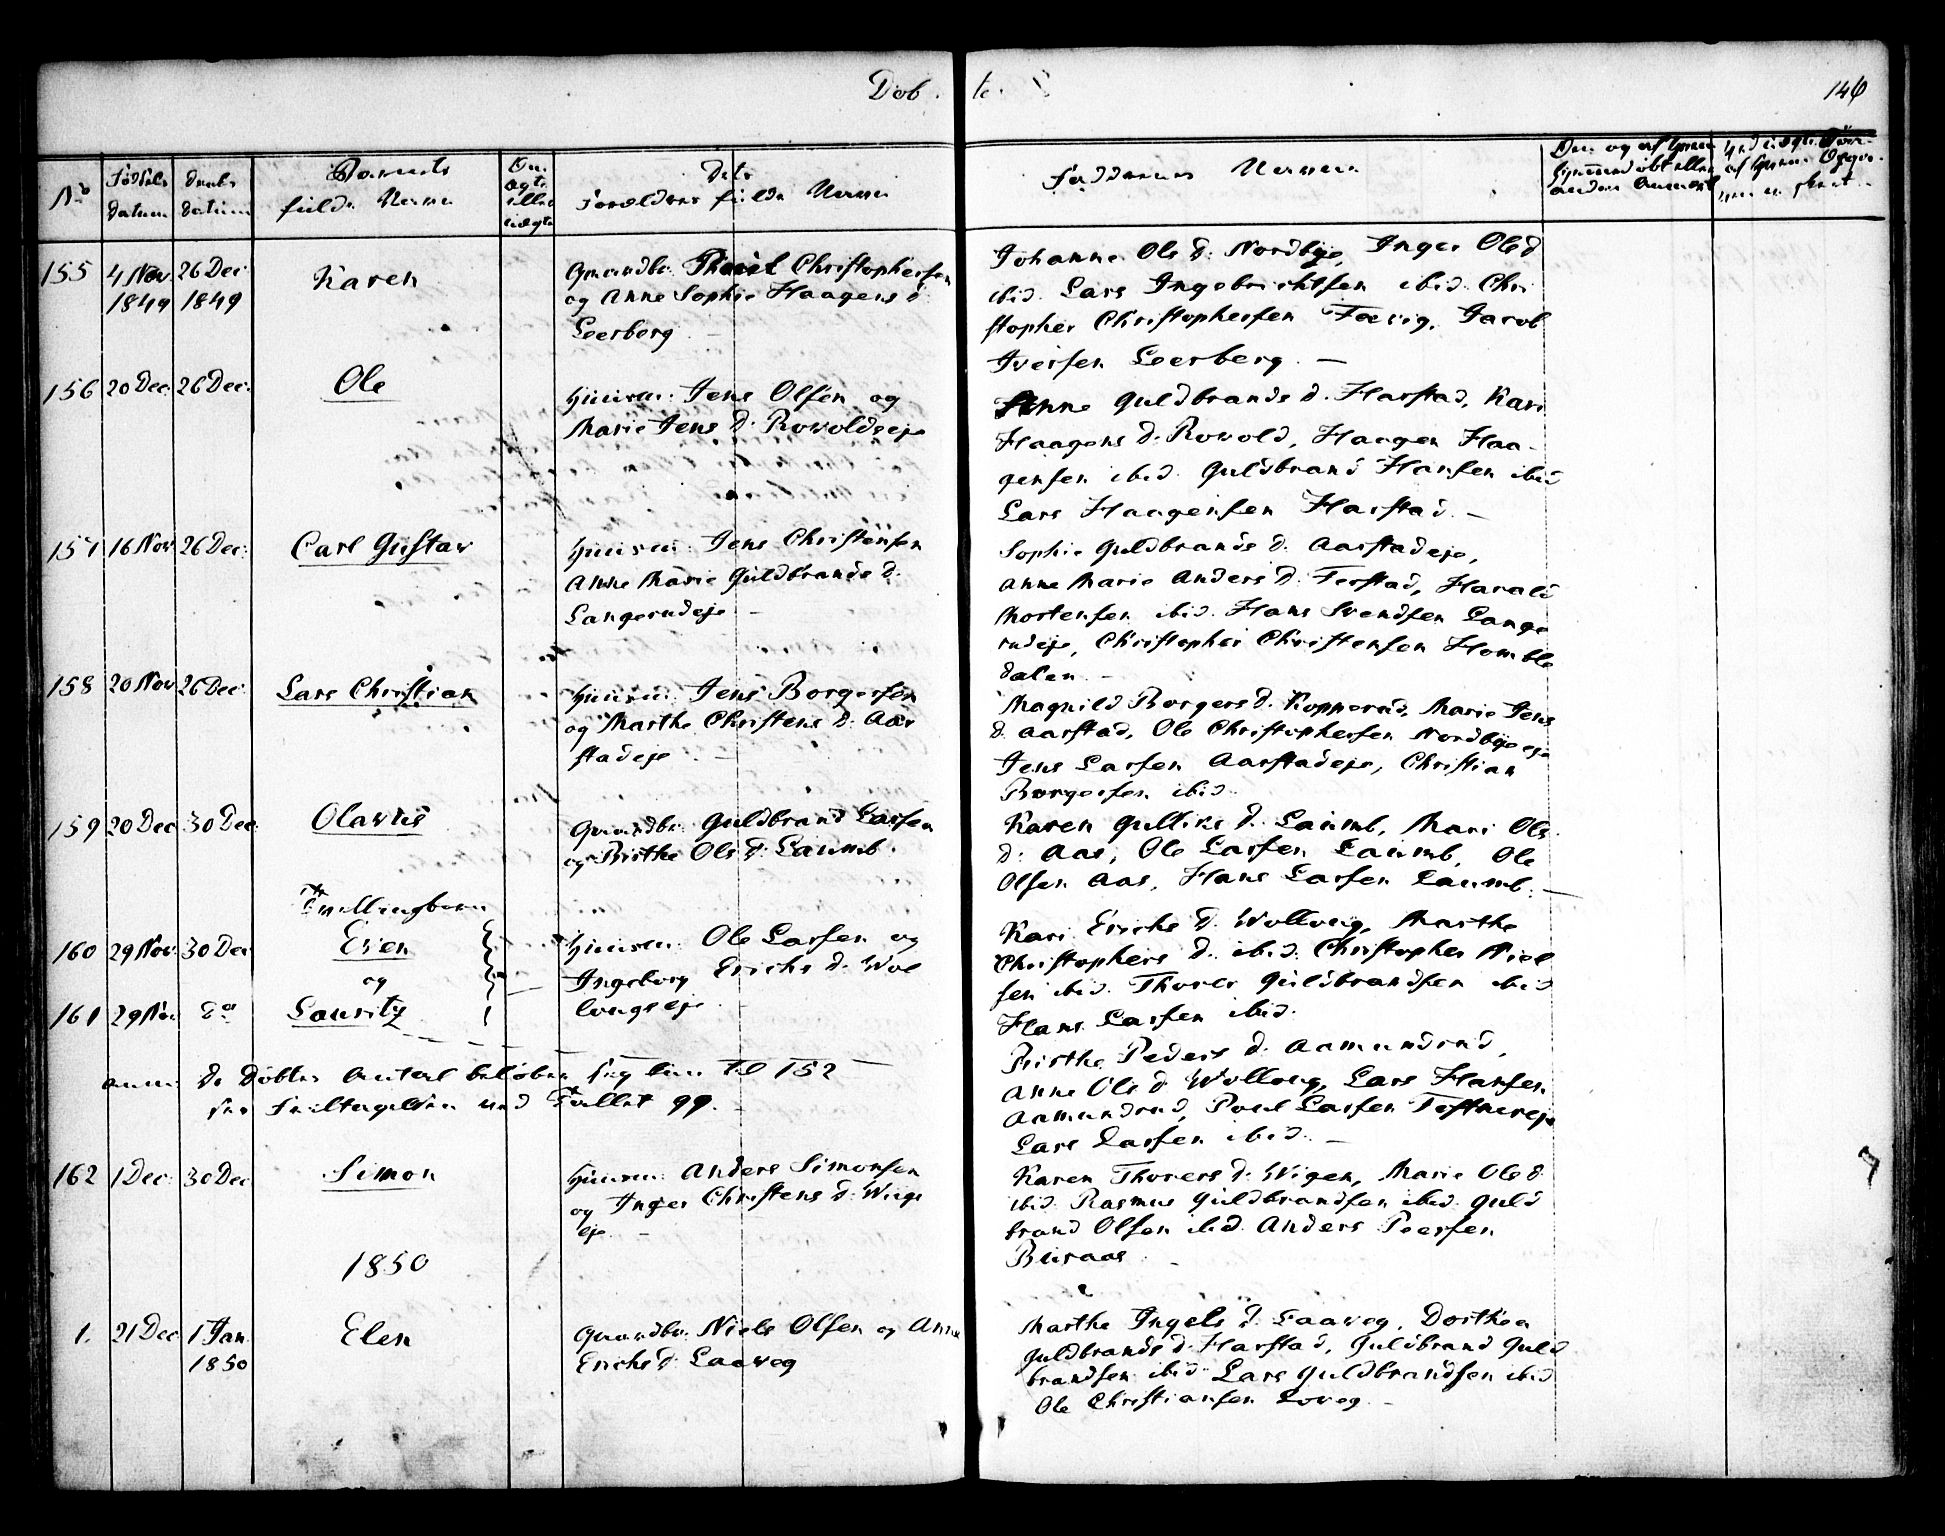 Døb
te.
146
No
Fødsels
datum
Daabs
datum
Barnets
fulde Navn
Om
ægte
eller
uægte
Dets
Forældres fulde Navne
Faddernes Navne
Om og af hvem
hjemmedøbt eller
anden Anmærk
155
4 Nov.
1849
26 Dec
1849
Karen
Gaardbr. Christophersen
og Anne Sophie Haagens d.
Leerberg
Johanne Ols d. Nordbye, Inger Ols d
ibid. Lars Ingebrichtsen ibid. Chri
stopher Christophersen Fævig, Jacob
Iversen Leerberg. —
156
20 Dec.
26 Dec.
Ole
Huusm. Jens Olsen og
Marie Jens d. Rovoldseje
Anne Guldbrands d. Harstad, Kari
Haagens d. Rovold, Haagen Haa-
gensen ibid. Guldbrand Hansen ibid
Lars Haagensen Harstad. —
157
16 Nov
26 Dec.
Carl Gustav
Huusm. Jens Christensen
Anne Marie Guldbrands d.
Langerudeje —
Sophie Guldbrands d. Aarstadeje,
Anne Marie Anders d. Terstad, Harald
Mortensen ibid. Hans Svendsen Lange
rudeje, Christopher Christensen Homble
dalen. —
158
20 Nov
26 Dec.
Lars Christian
Huusm. Jens Borgersen
og Marthe Christens d. Aar
stadeje. —
Magnild Borgers d. Kopperud, Marie Jens
d. Aarstad, Ole Christophersen Nordbyeeje
Jens Larsen Aarstadeje, Christian
Borgersen ibid.
159
20 Dec
30 Dec.
Olavus
Gaardbr. Guldbrand Larsen
og Birthe Ols d. Laumb.
Karen Gulliks d. Laumb, Mari Ols
d. Aas, Ole Larsen Laumb, Ole
Olsen Aas, Hans Larsen Laumb. —
Tvillingbørn
160
29 Nov.
30 Dec
Even
og
161
29 Nov
do
Lauritz
Huusm. Ole Larsen og
Ingeborg Erichs d. Wol
lougseje.
Kari Erichs d. Wolloug, Marthe
Christophers d. ibid. Christopher Niel
sen ibid. Thorer Guldbrandsen ibid
Hans Larsen ibid.
Birthe Peders d. Aamundrud,
Anne Ols d. Wolloug, Lars Hansen
Aamundrud, Poul Larsen Toftnereje
Lars Larsen ibid. —
Anm: De Døbtes Antal beløber sig kun til 152 —
Tallet 99.
162
1 Dec.
30 Dec
Simon
Huusm. Anders Simonsen
og Inger Christens d. Wige
eje. —
Karen Thorers d. Wigen, Marie Ols d.
ibid. Rasmus Guldbrandsen ibid. Guld
brand Olsen ibid. Anders Peersen
Buraas.
1850
1.
21 Dec
1 Jan.
1850
Elen
Gaardbr. Niels Olsen og Anne
Erichs d. Laaveg
Marthe Ingels d. Laaveg, Dorthea
Guldbrands d. Harstad, Guldbrand Guld
brandsen ibid. Lars Guldbrandsen ibid
Ole Christiansen Loveg. —